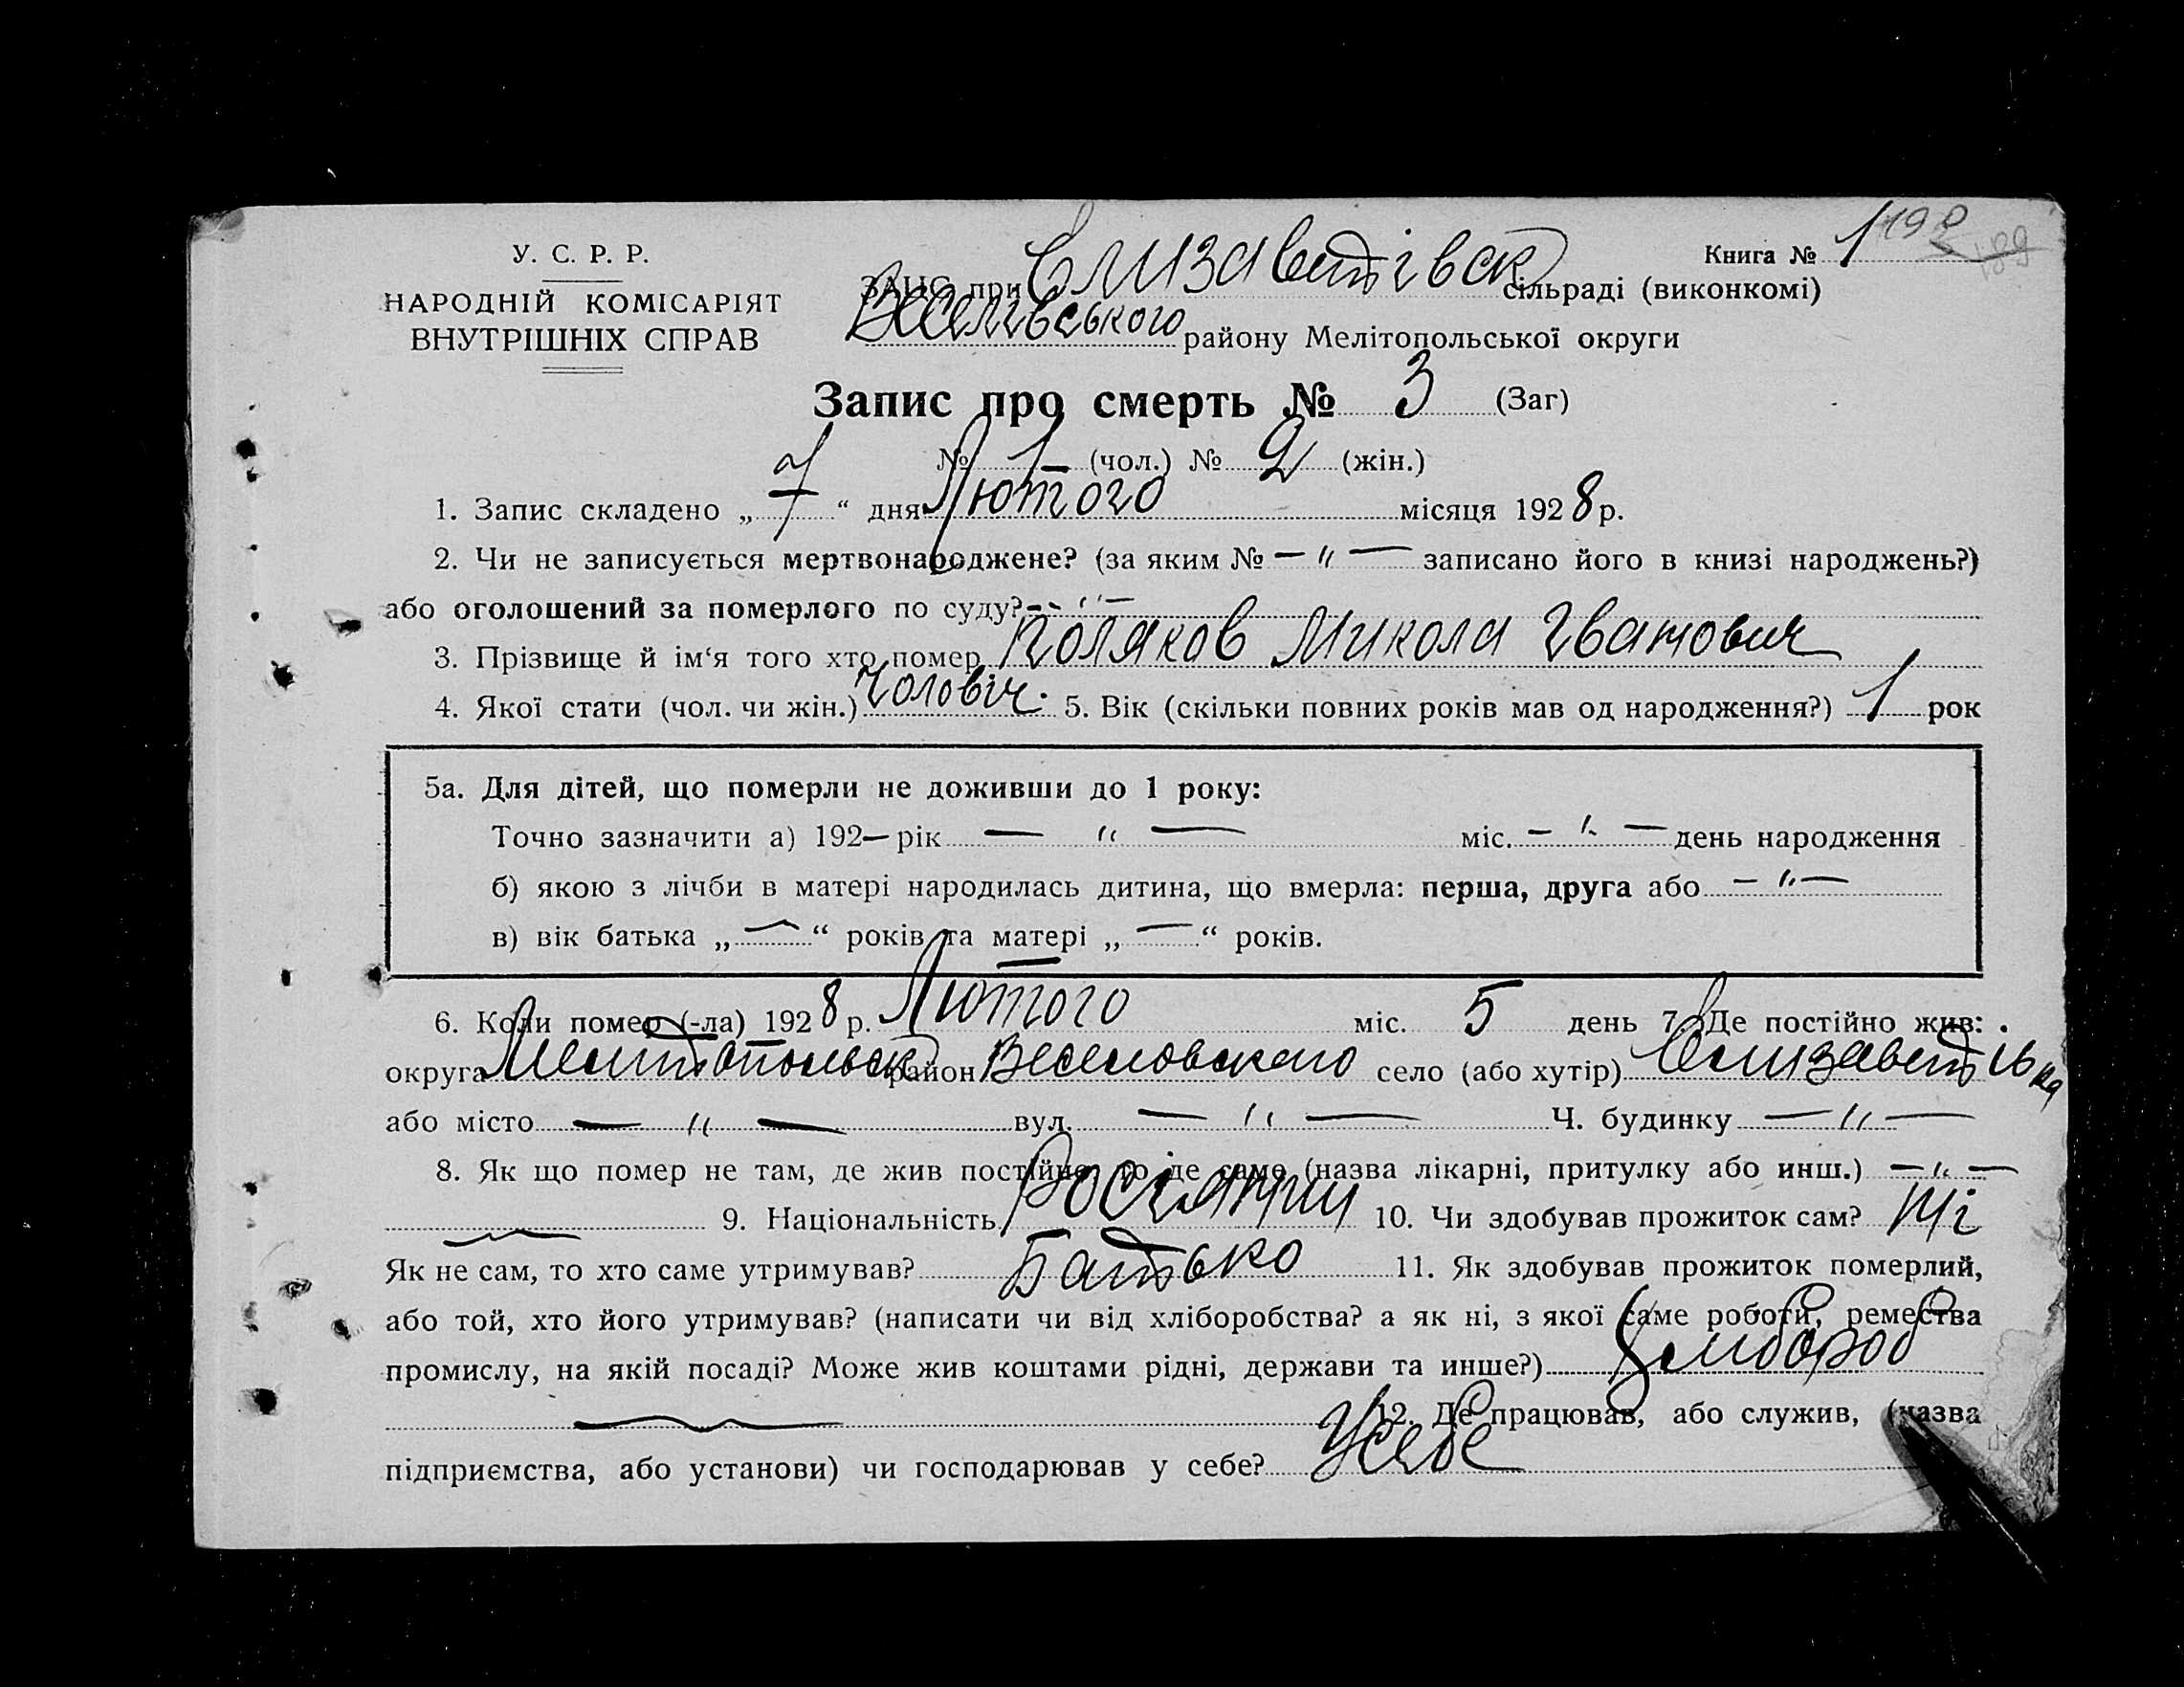 У. С. Р. Р.
НАРОДНІЙ КОМІСАРІЯТ
ВНУТРІШНІХ СПРАВ
Книга № 1
ЗАЦС при Єлизаветівск сільраді (виконкомі)
Веселівського району Мелітопольської округи
Запис про смерть № 3 (Заг)
№ 1 (чол.) № 2 (жін.)
1. Запис складено „ 7 “ дня Лютого місяця 1928 р.
2. Чи не записується мертвонароджене? (за яким № — „ — записано його в книзі народжень?)
або оголошений за померлого по суду? — „ —
3. Прізвище й ім‘я того хто помер Поляков Микола Іванович
4. Якої стати (чол. чи жін.) Чоловіч. 5. Вік (скільки повних років мав од народження?) 1 рок
5а. Для дітей, що померли не доживши до 1 року:
Точно зазначити а) 192— рік — „ — міс. — „ — день народження
б) якою з лічби в матері народилась дитина, що вмерла: перша, друга або — „ —
в) вік батька „ — “ років та матері „ — “ років.
6. Коли помер (-ла) 1928 р. Лютого міс. 5 день 7. Де постійно жив:
округа Мелитопольск район Веселовского село (або хутір) Єлизаветівка
або місто — „ — вул. — „ — Ч. будинку — „ —
8. Як що помер не там, де жив постійно, то де саме (назва лікарні, притулку або инш.) — „ —
9. Національність Росіянин 10. Чи здобував прожиток сам? Ні
Як не сам, то хто саме утримував? Батько 11. Як здобував прожиток померлий,
або той, хто його утримував? (написати чи від хліборобства? а як ні, з якої саме роботи, ремества
промислу, на якій посаді? Може жив коштами рідні, держави та инше?) Хлибороб
12. Де працював, або служив, (назва
підприємства, або установи) чи господарював у себе? У себе